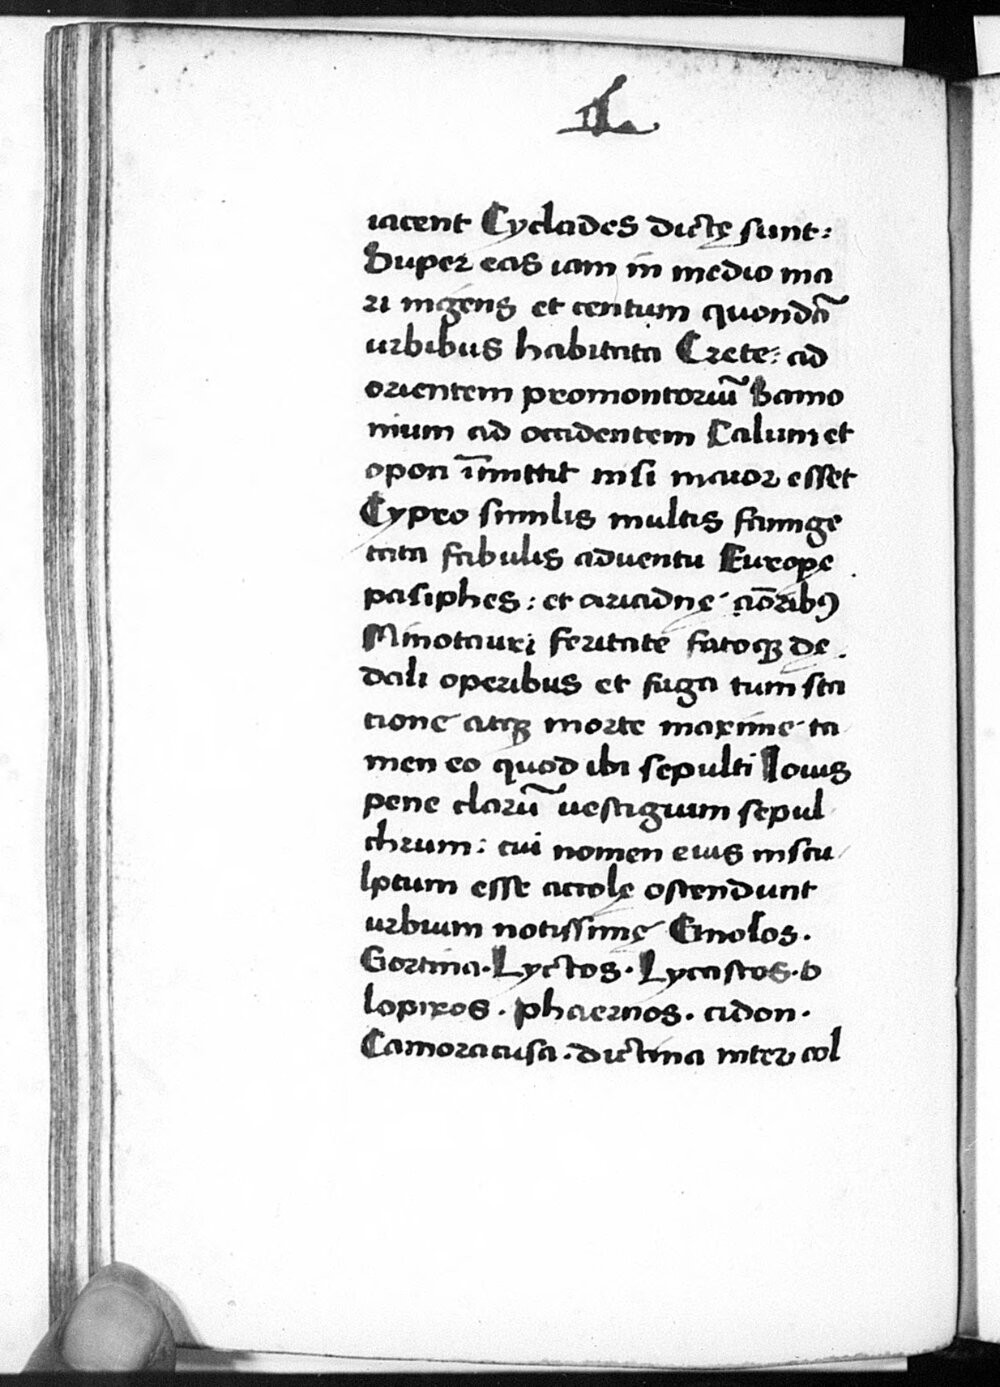 iacent Cyclades dictę sunt:
Super eas iam in medio ma
ri ingens et centum quondã
urbibus habitata Crete: ad
orientem promontoriũ Samo
nium ad occidentem Calumet
opon ĩmittit nisi maior esset
Cypro similis multis famige
tata fabulis adventu Europe
pasiphes: et ariadnę aõribꝰ
Minotauri feritate fatoqꝫ de
dali operibus et fuga tum sta
tione atqꝫ morte maxime ta
men eo quod ibi sepulti Iouis
pene clarũ vestigium sepul
chrum: cui nomen eius inscu
lptum esse accolę ostendunt
urbium notissimę Gnolos.
Gortina. Lyctos. Lycastos. o
lopixos. phaernos. cidon.
Camoracusa. dictina inter col